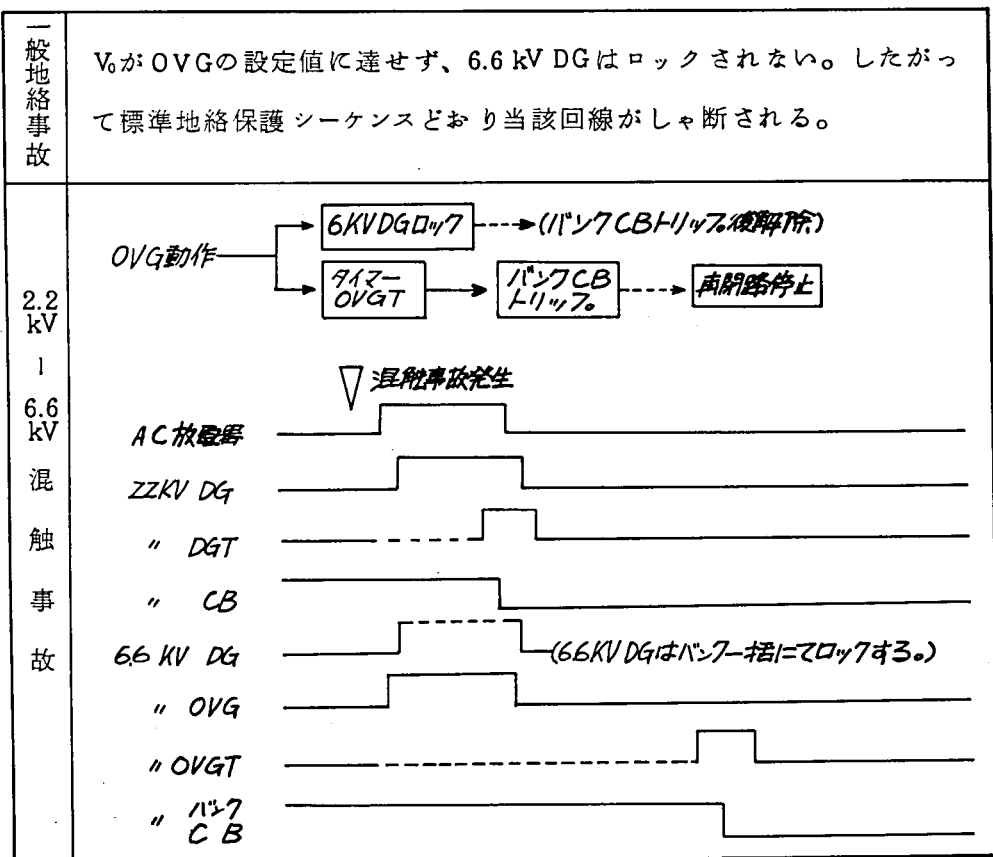 一般地絡事故
V₀がOVGの設定値に達せず、6.6 kV DGはロックされない。したがっ
て標準地絡保護シーケンスどおり当該回線がしゃ断される。
2.2 kV 〜 6.6 kV 混触事故
OVG動作
6KVDGロック
(バンクCBトリップ後解除)
タイマー
OVGT
バンクCB
トリップ
再閉路停止
混触事故発生
AC放電器
22KV DG
〃 DGT
〃 CB
6.6 KV DG
(6.6KV DGはバンク一括にてロックする。)
〃 OVG
〃 OVGT
〃 バンク
CB